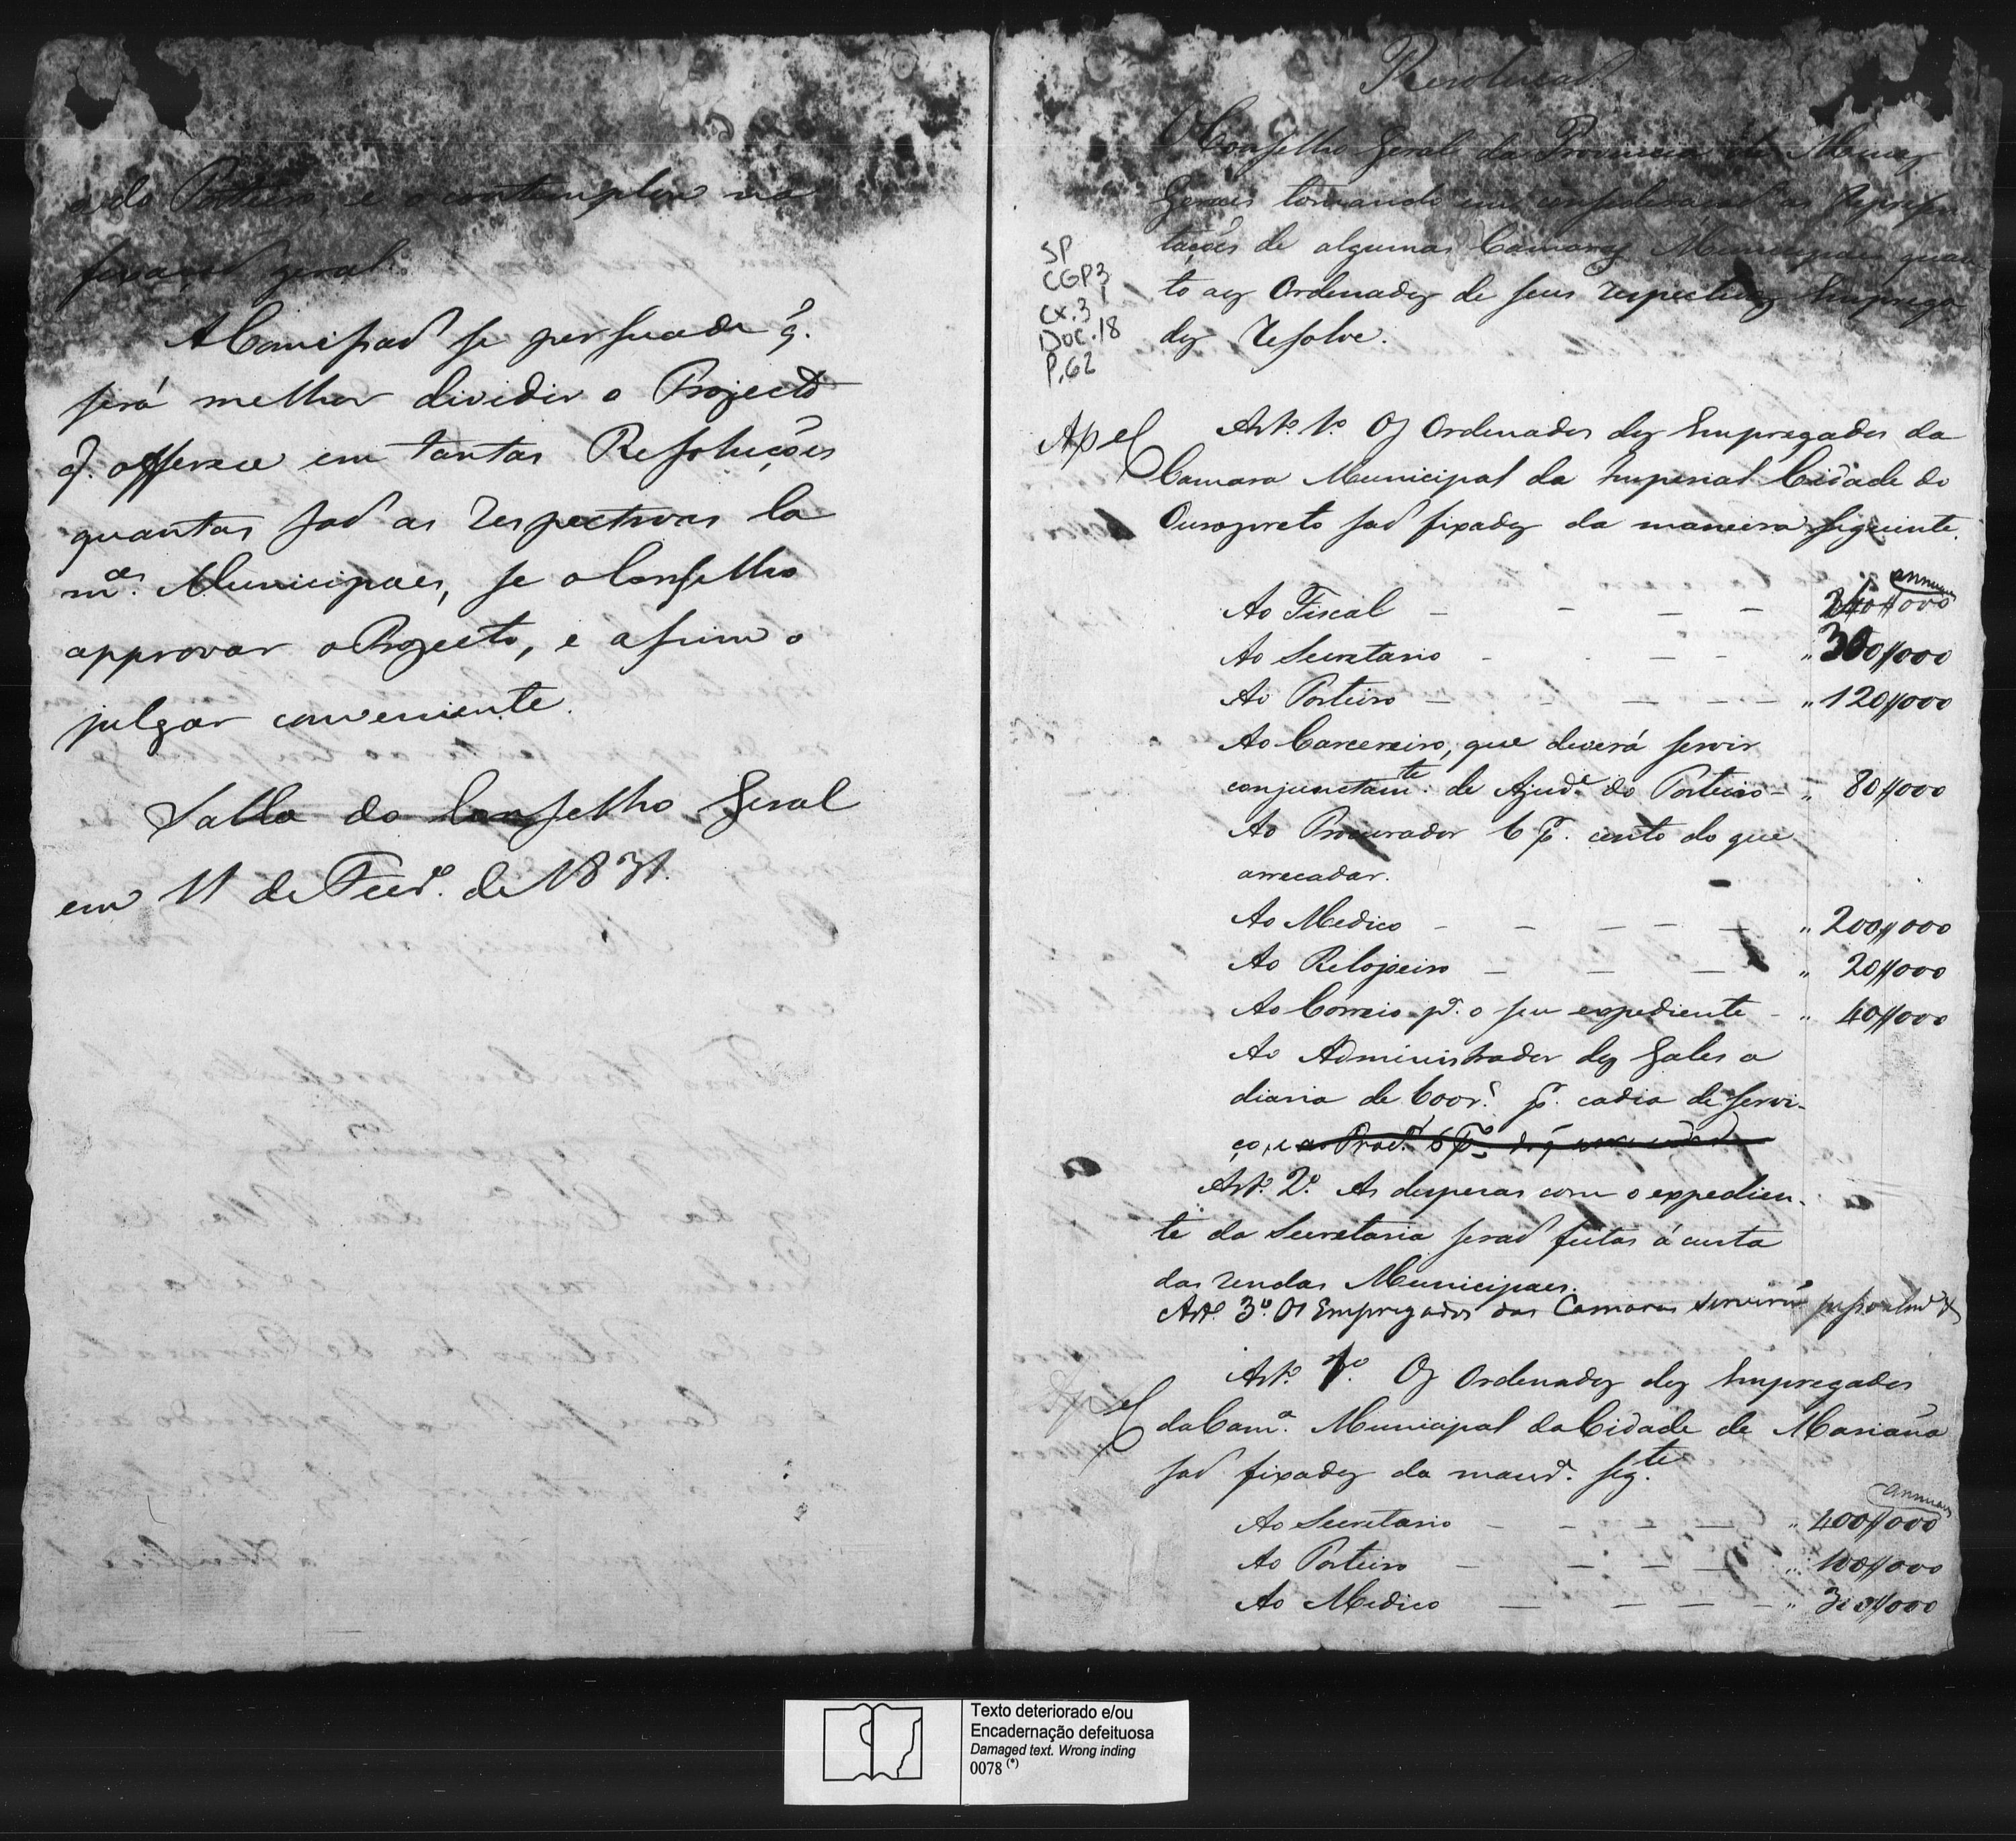 a do Porteiro, e o contemplou na
fixação geral.
A Comissaõ se persuade q.
será melhor dividir o Projecto
q. offerece em tantas Resoluções
quantas saõ as respectivas Ca
m.as Municipaes, se o Conselho
approvar o Projecto, e assim o
julgar conveniente.
Salla do Conselho Geral
em 11 de Fev.o de 1831.
Resoluçaõ
O Conselho Geral da Provincia de Minas
Geraes tomando em consideraçaõ as Represen
tações de algumas Camaras Municipaes quan
to aos Ordenados de seus respectivos Emprega
dos resolve.
SP
CGP3
CX.3
DOC.18
P.62
Art.o 1.o Os Ordenados dos Empregados da
Camara Municipal da Imperial Cidade do
Ouropreto saõ fixados da maneira seguinte.
annuaes
Ao Fiscal — — — 240$000
Ao Secretario — — — " 300$000
Ao Porteiro — — — " 120$000
Ao Carcereiro, que deverá servir
conjunctam.te de Ajud.e do Porteiro — " 80$000
Ao Procurador 6 p. cento do que
arrecadar.
Ao Medico — — — " 200$000
Ao Relojeiro — — — " 20$000
Ao Correio p.a o seu expediente — " 40$000
Ao Administrador dos Gales a
diaria de 600 r.s p. cadia de servi-
ço, e ao Proc.or 6 p.
Art.o 2.o As despezas com o expedien-
te da Secretaria seraõ feitas á custa
das rendas Municipaes.
Art.o 3.o Os Empregados das Camaras serviráõ
Art.o 1.o Os Ordenados dos Empregados
da Cam.a Municipal da Cidade de Marianna
saõ fixados da man.ra seg.te
annuaes
Ao Secretario — — — " 400$000
Ao Porteiro — — — " 100$000
Ao Medico — — — " 300$000
Texto deteriorado e/ou
Encadernação defeituosa
Damaged text. Wrong inding
0078 (*)